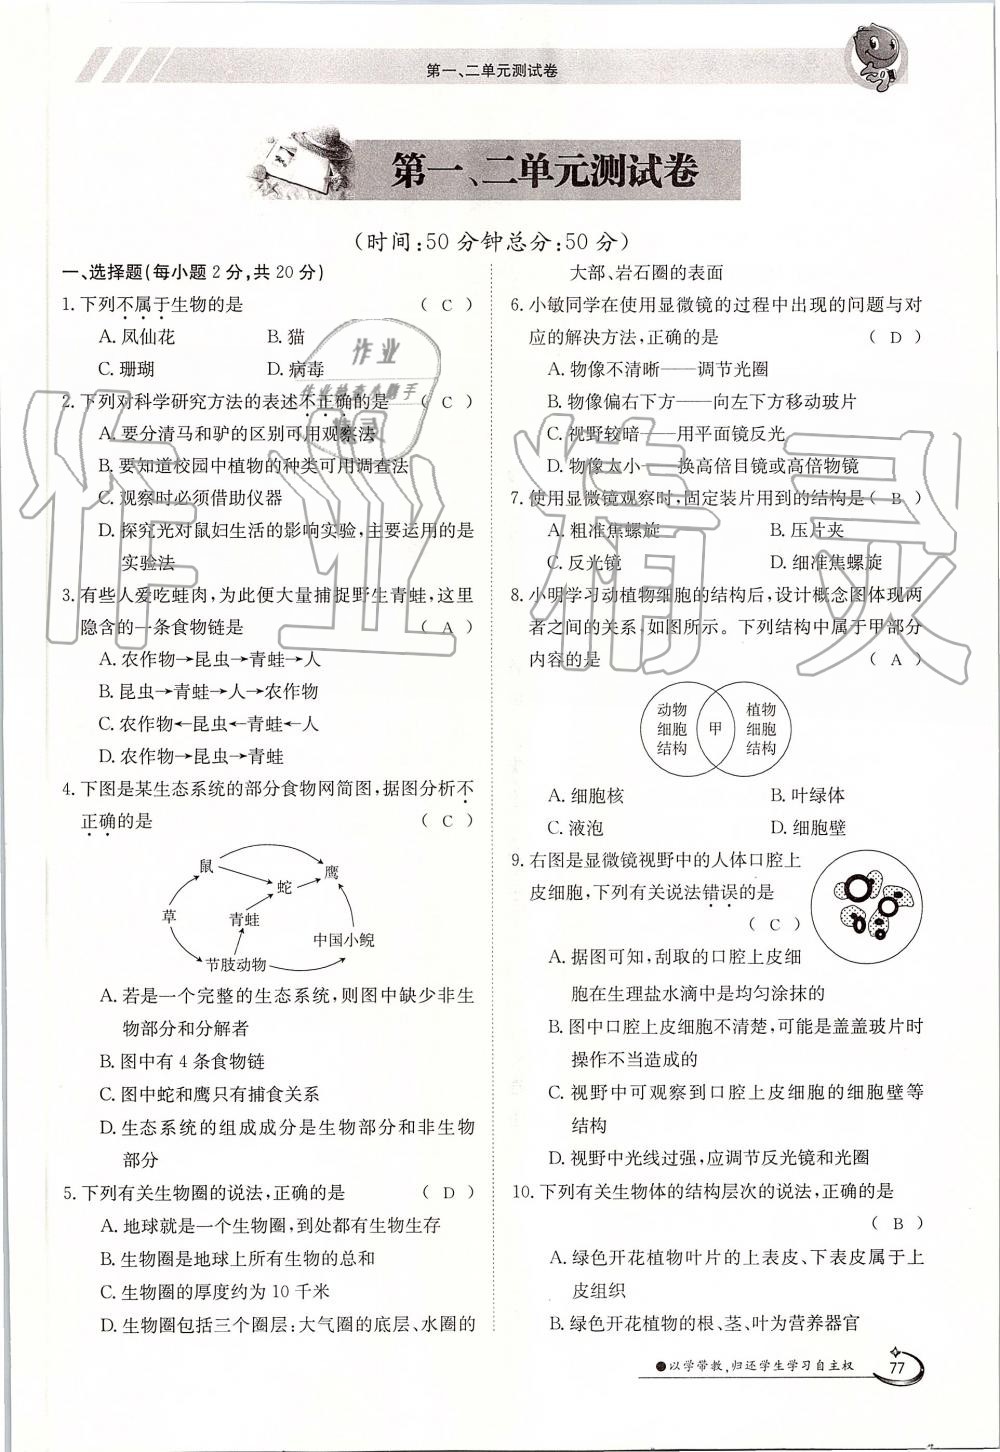 第一、二单元测试卷
第一、二单元测试卷
(时间:50分钟总分:50分)
一、选择题(每小题2分,共20分)
1.下列不属于生物的是 ( C )
A.凤仙花 B.猫
C.珊瑚 D.病毒
2.下列对科学研究方法的表述不正确的是 ( C )
A.要分清马和驴的区别可用观察法
B.要知道校园中植物的种类可用调查法
C.观察时必须借助仪器
D.探究光对鼠妇生活的影响实验,主要运用的是
实验法
3.有些人爱吃蛙肉,为此便大量捕捉野生青蛙,这里
隐含的一条食物链是 ( A )
A.农作物→昆虫→青蛙→人
B.昆虫→青蛙→人→农作物
C.农作物←昆虫←青蛙←人
D.农作物→昆虫→青蛙
4.下图是某生态系统的部分食物网简图,据图分析不
正确的是 ( C )
鼠
鹰
蛇
草
青蛙
中国小鲵
节肢动物
A.若是一个完整的生态系统,则图中缺少非生
物部分和分解者
B.图中有4条食物链
C.图中蛇和鹰只有捕食关系
D.生态系统的组成成分是生物部分和非生物
部分
5.下列有关生物圈的说法,正确的是 ( D )
A.地球就是一个生物圈,到处都有生物生存
B.生物圈是地球上所有生物的总和
C.生物圈的厚度约为10千米
D.生物圈包括三个圈层:大气圈的底层、水圈的
大部、岩石圈的表面
6.小敏同学在使用显微镜的过程中出现的问题与对
应的解决方法,正确的是 ( D )
A.物像不清晰——调节光圈
B.物像偏右下方——向左下方移动玻片
C.视野较暗——用平面镜反光
D.物像太小——换高倍目镜或高倍物镜
7.使用显微镜观察时,固定装片用到的结构是( B )
A.粗准焦螺旋 B.压片夹
C.反光镜 D.细准焦螺旋
8.小明学习动植物细胞的结构后,设计概念图体现两
者之间的关系,如图所示。下列结构中属于甲部分
内容的是 ( A )
动物 植物
细胞 甲 细胞
结构 结构
A.细胞核 B.叶绿体
C.液泡 D.细胞壁
9.右图是显微镜视野中的人体口腔上
皮细胞,下列有关说法错误的是
( C )
A.据图可知,刮取的口腔上皮细
胞在生理盐水滴中是均匀涂抹的
B.图中口腔上皮细胞不清楚,可能是盖盖玻片时
操作不当造成的
C.视野中可观察到口腔上皮细胞的细胞壁等
结构
D.视野中光线过强,应调节反光镜和光圈
10.下列有关生物体的结构层次的说法,正确的是
( B )
A.绿色开花植物叶片的上表皮、下表皮属于上
皮组织
B.绿色开花植物的根、茎、叶为营养器官
●以学带教,归还学生学习自主权
77
作业
作业检查小助手
精灵
作业精灵